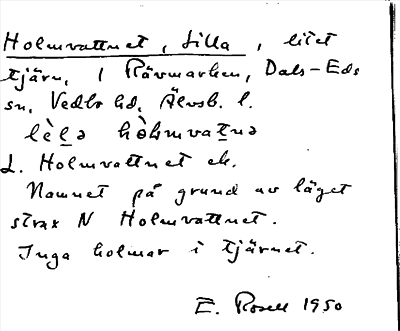 Holmvattnet, Lilla, litet
tjärn, i Rävmarken, Dals-Eds
sn, Vedbo hd, Älvsb. l.
lè̱lə hòlmvatnə
L. Holmvattnet ek.
Namnet på grund av läget
strax N Holmvattnet.
Inga holmar i tjärnet.
E. Rosell 1950